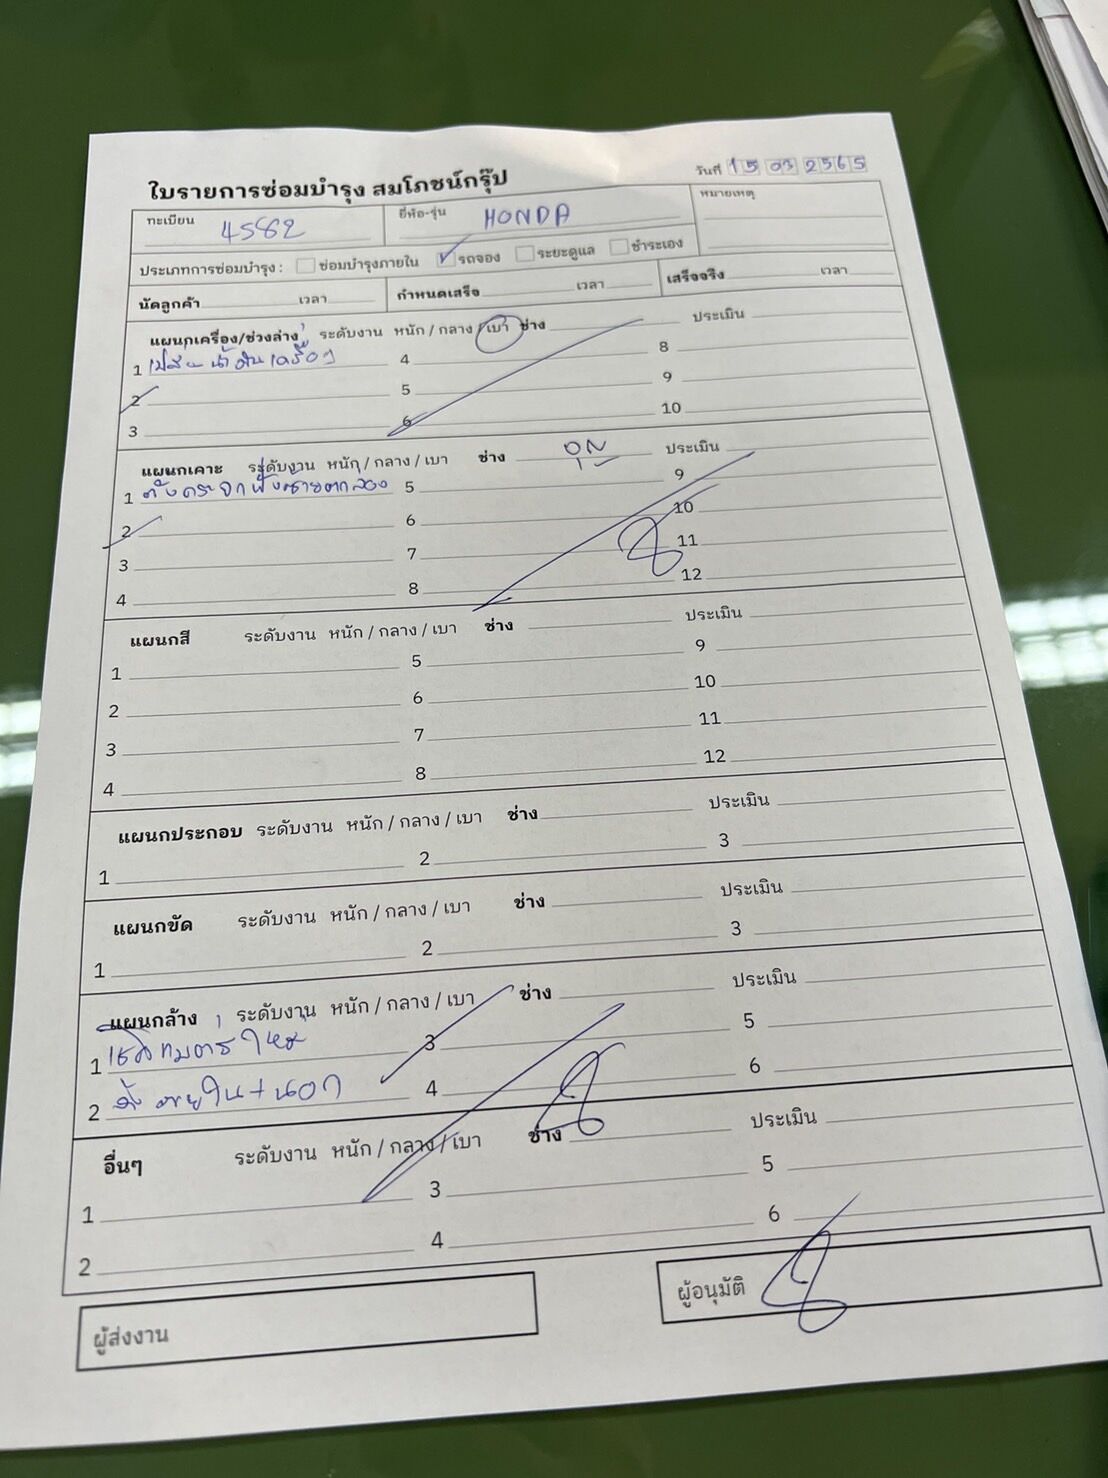 ใบรายการซ่อมบำรุง สมโภชน์กรุ๊ป
วันที่ 15 03 2565
ทะเบียน 4582 ยี่ห้อ-รุ่น HONDA หมายเหตุ
ประเภทการซ่อมบำรุง : ซ่อมบำรุงภายใน รถจอง ระยะดูแล ชำระเอง
นัดลูกค้า เวลา กำหนดเสร็จ เวลา เสร็จจริง เวลา
แผนกเครื่อง/ช่วงล่าง ระดับงาน หนัก / กลาง / เบา ช่าง ประเมิน
1 น้ำมันเครื่อง 4 8
2 5 9
3 6 10
แผนกเคาะ ระดับงาน หนัก / กลาง / เบา ช่าง ประเมิน
1 5 9
2 6 10
3 7 11
4 8 12
แผนกสี ระดับงาน หนัก / กลาง / เบา ช่าง ประเมิน
1 5 9
2 6 10
3 7 11
4 8 12
แผนกประกอบ ระดับงาน หนัก / กลาง / เบา ช่าง ประเมิน
1 2 3
แผนกขัด ระดับงาน หนัก / กลาง / เบา ช่าง ประเมิน
1 2 3
แผนกล้าง ระดับงาน หนัก / กลาง / เบา ช่าง ประเมิน
1 3 5
2 4 6
อื่นๆ ระดับงาน หนัก / กลาง / เบา ช่าง ประเมิน
1 3 5
2 4 6
ผู้ส่งงาน ผู้อนุมัติ